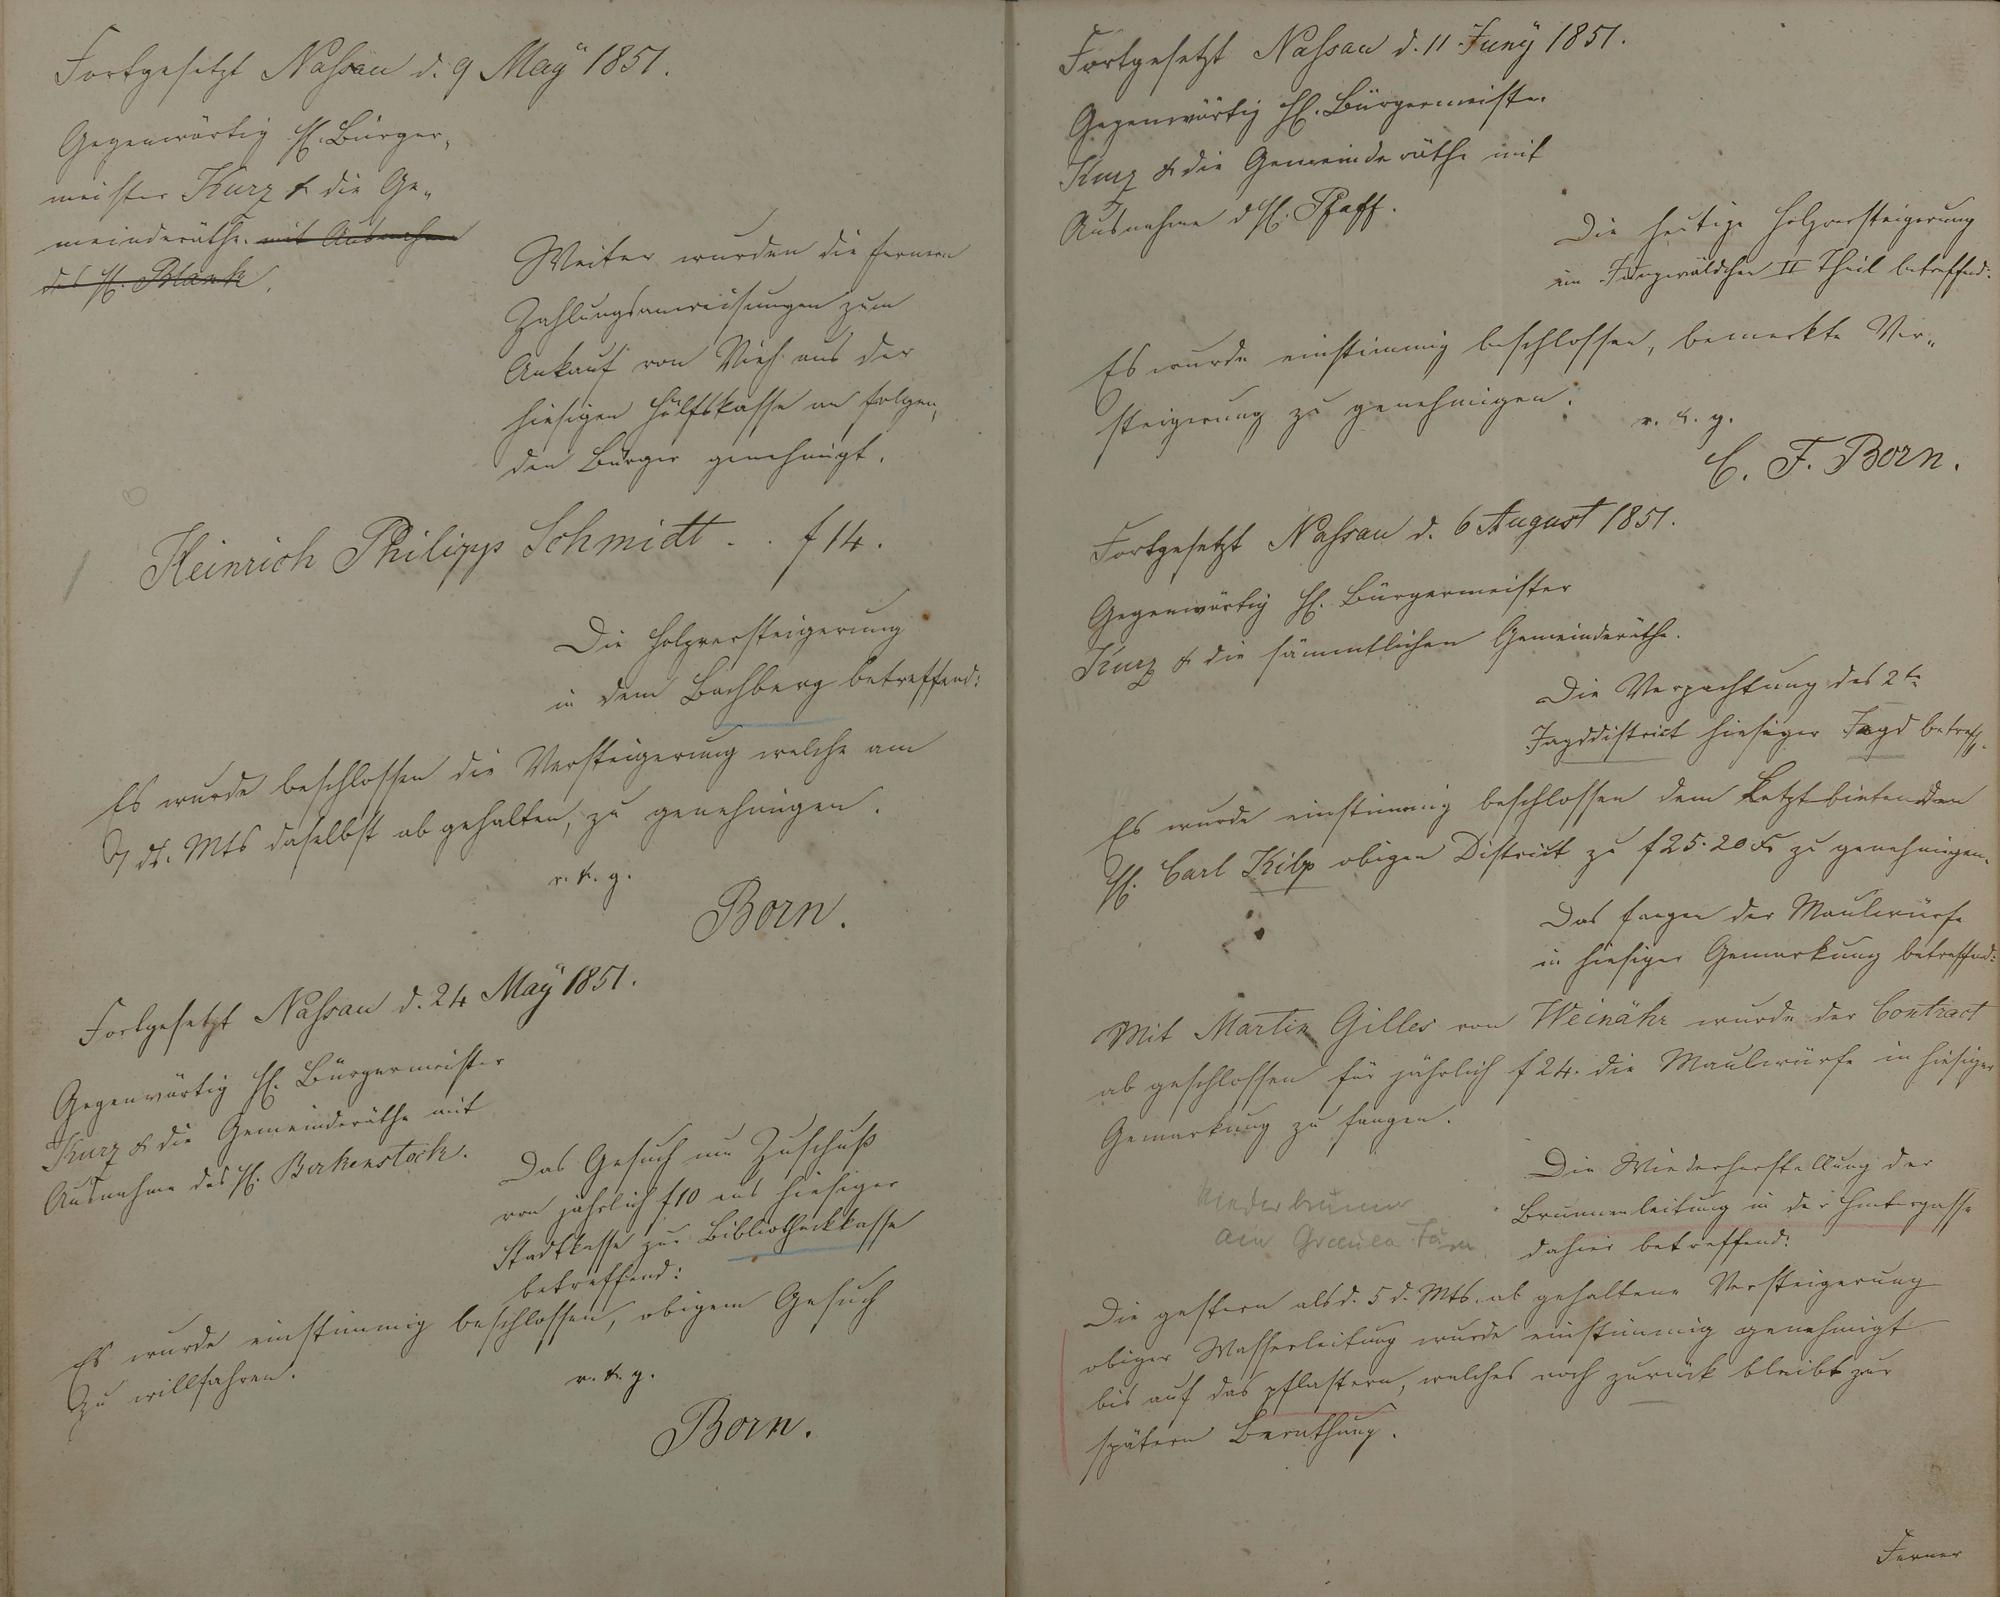 Fortgesetzt Nassau d. 9 May 1851.
Gegenwärtig H. Bürger„
meister Kurz & die Ge„
meinderäthe. mit Ausnahme
des H. Blank.
Weiter wurden die fernern
Zahlungsanweisungen zum
Ankauf von Vieh aus der
hiesigen Hülfskasse an folgen„
den Bürger genehmigt.
Heinrich Philipp Schmidt . . f 14.
Die Holzversteigerung
in dem Bachberg betreffend:
Es wurde beschlossen die Versteigerung welche am
7 ds. Mts daselbst abgehalten, zu genehmigen.
v. k. g.
Born.
Fortgesetzt Nassau d. 24 May 1851.
Gegenwärtig H. Bürgermeister
Kurz & die Gemeinderäthe mit
Ausnahme des H. Birkenstock.
Das Gesuch um Zuschuß
von jährlich f 10 aus hiesiger
Stadtkasse zur Bibliotheckkasse
betreffend:
Es wurde einstimmig beschlossen, obigem Gesuch
zu willfahren.
v. k. g.
Born.
Fortgesetzt Nassau d. 11 Juny 1851.
Gegenwärtig H. Bürgermeister
Kurz & die Gemeinderäthe mit
Ausnahme d H. Pfaff.
Die heutige Holzversteigerung
im Jungwäldchen II Theil betreffend:
Es wurde einstimmig beschlossen, bemerkte Ver„
steigerung zu genehmigen.
v. k. g.
C. F. Born.
Fortgesetzt Nassau d. 6 August 1851.
Gegenwärtig H. Bürgermeister
Kurz & die sämmtlichen Gemeinderäthe.
Die Verpachtung des 2te
Jagddistrict hiesiger Jagd betreff.
Es wurde einstimmig beschlossen dem Letztbietenden
H. Carl Kilp obigen District zu f 25. 20 xr zu genehmigen.
Das fangen der Maulwürfe
in hiesiger Gemarkung betreffend:
Mit Martin Gilles von Weinähr wurde der Contract
abgeschlossen für jährlich f 24. die Maulwürfe in hiesiger
Gemarkung zu fangen.
Die Wiederherstellung der
Brunnenleitung in der Hintergasse
dahier betreffend:
Die gestern als d. 5 d. Mts. abgehaltene Versteigerung
obiger Wasserleitung wurde einstimmig genehmigt
bis auf das pflastern, welches noch zurück bleibt zur
spätern Berathung.
Ferner